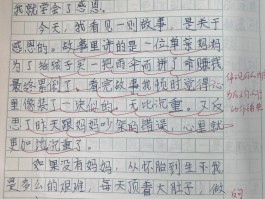 我就学会了感恩。
今天，我看见一则故事，是关于
感恩的。故事里讲的是一位单亲妈妈
为了给孩子买一把雨伞而拼了命赚钱
最终累倒了、看完故事我顿时觉得心
里像装了一块似的。无比沉重。又反
思了昨天跟妈妈吵架的错误，心里就
更加沉重了。
如果没有妈妈，从怀胎到生下我
是多么的艰难，每天顶着大肚子，做